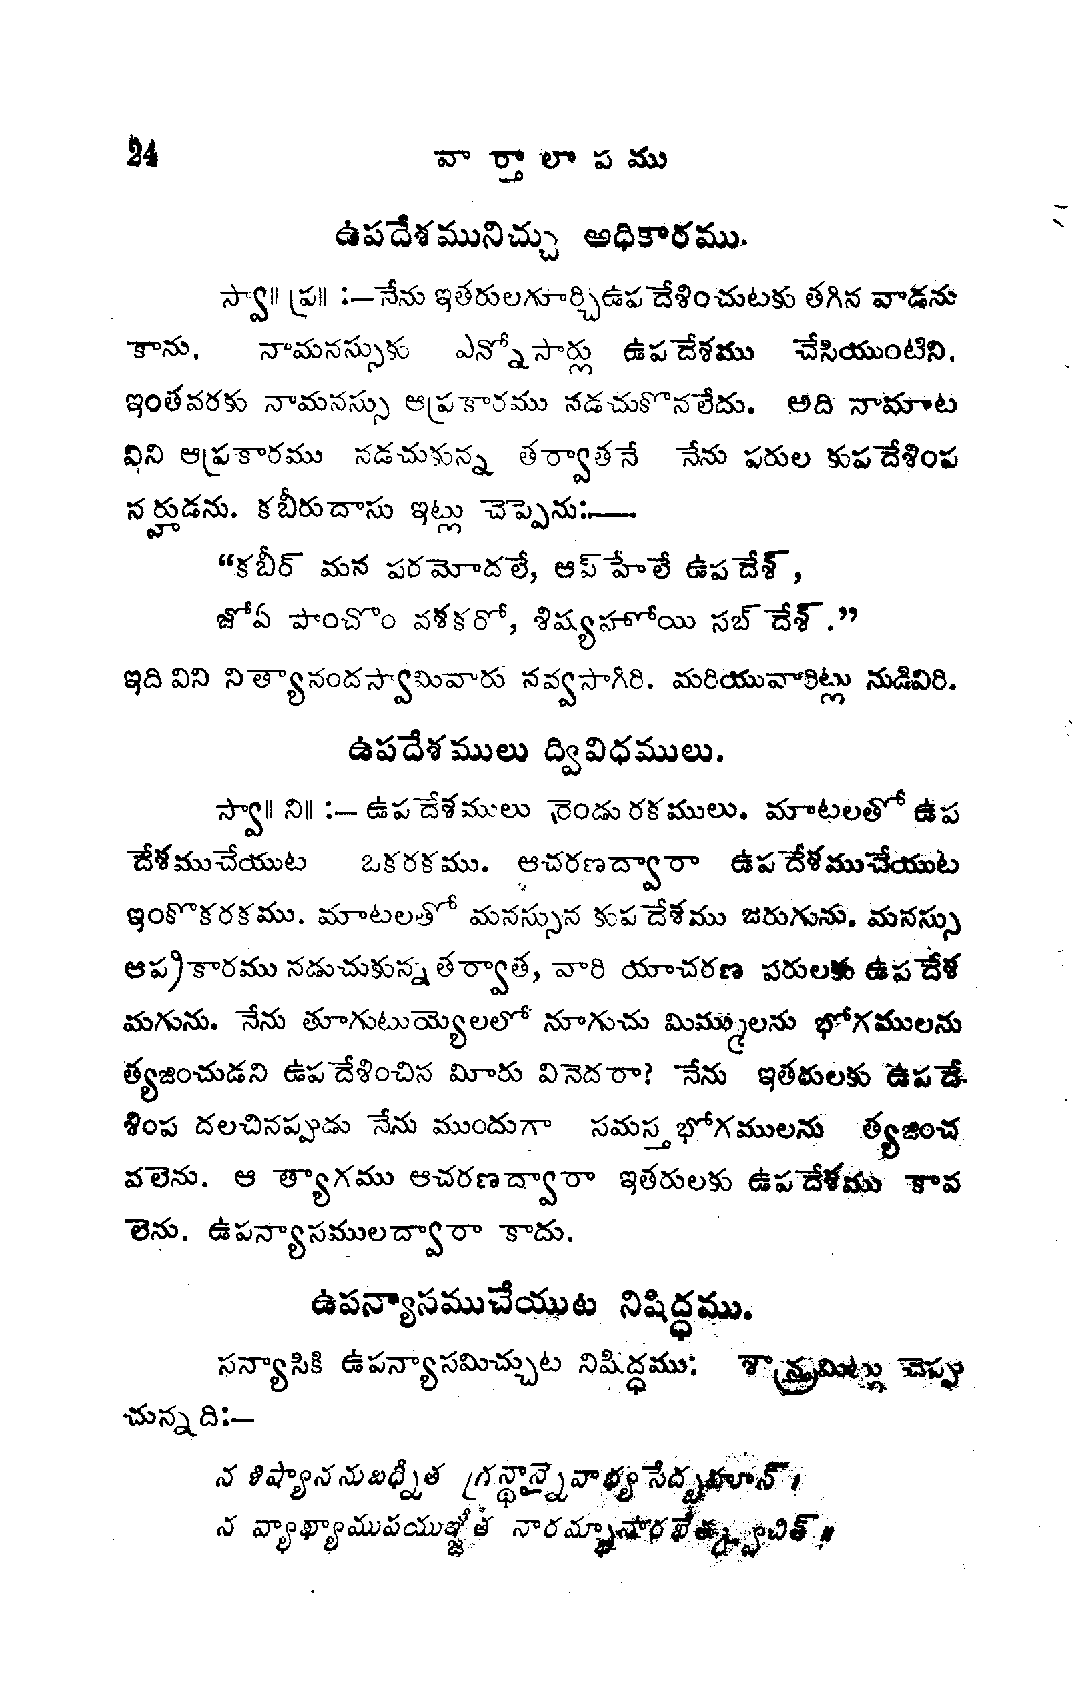 24
వా ర్తా లా ప ము
ఉపదేశమునిచ్చు అధికారము.
స్వా॥ ప్ర॥ :—నేను ఇతరులగూర్చిఉపదేశించుటకు తగిన వాడను
కాను. నామనస్సుకు ఎన్నోసార్లు ఉపదేశము చేసియుంటిని.
ఇంతవరకు నామనస్సు ఆప్రకారము నడచుకొనలేదు. అది నామాట
విని ఆప్రకారము నడచుకున్న తర్వాతనే నేను పరుల కుపదేశింప
నర్హుడను. కబీరుదాసు ఇట్లు చెప్పెను:—
“కబీర్ మన పరమోదలే, ఆప్‌హేలే ఉపదేశ్,
జోఏ పాంచొం వశకరో, శిష్యహోయి సబ్ దేశ్.”
ఇది విని నిత్యానందస్వామివారు నవ్వసాగిరి. మరియువారిట్లు నుడివిరి.
ఉపదేశములు ద్వివిధములు.
స్వా॥ ని॥ :— ఉపదేశములు రెండు రకములు. మాటలతో ఉప
దేశముచేయుట ఒకరకము. ఆచరణద్వారా ఉపదేశముచేయుట
ఇంకొకరకము. మాటలతో మనస్సున కుపదేశము జరుగును. మనస్సు
ఆప్రకారము నడుచుకున్న తర్వాత, వారి యాచరణ పరులకు ఉపదేశ
మగును. నేను తూగుటుయ్యెలలో నూగుచు మిమ్మలను భోగములను
త్యజించుడని ఉపదేశించిన మీరు వినెదరా? నేను ఇతరులకు ఉపదే-
శింప దలచినప్పుడు నేను ముందుగా సమస్త భోగములను త్యజించ
వలెను. ఆ త్యాగము ఆచరణద్వారా ఇతరులకు ఉపదేశము కావ
లెను. ఉపన్యాసములద్వారా కాదు.
ఉపన్యాసముచేయుట నిషిద్ధము.
సన్యాసికి ఉపన్యాసమిచ్చుట నిషిద్ధము: శాస్త్రమిట్లు చెప్పు
చున్నది:—
న శిష్యాననుబధ్నీత గ్రన్థాన్నైవాభ్యసేద్బహూన్।
న వ్యాఖ్యాముపయుఞ్జీత